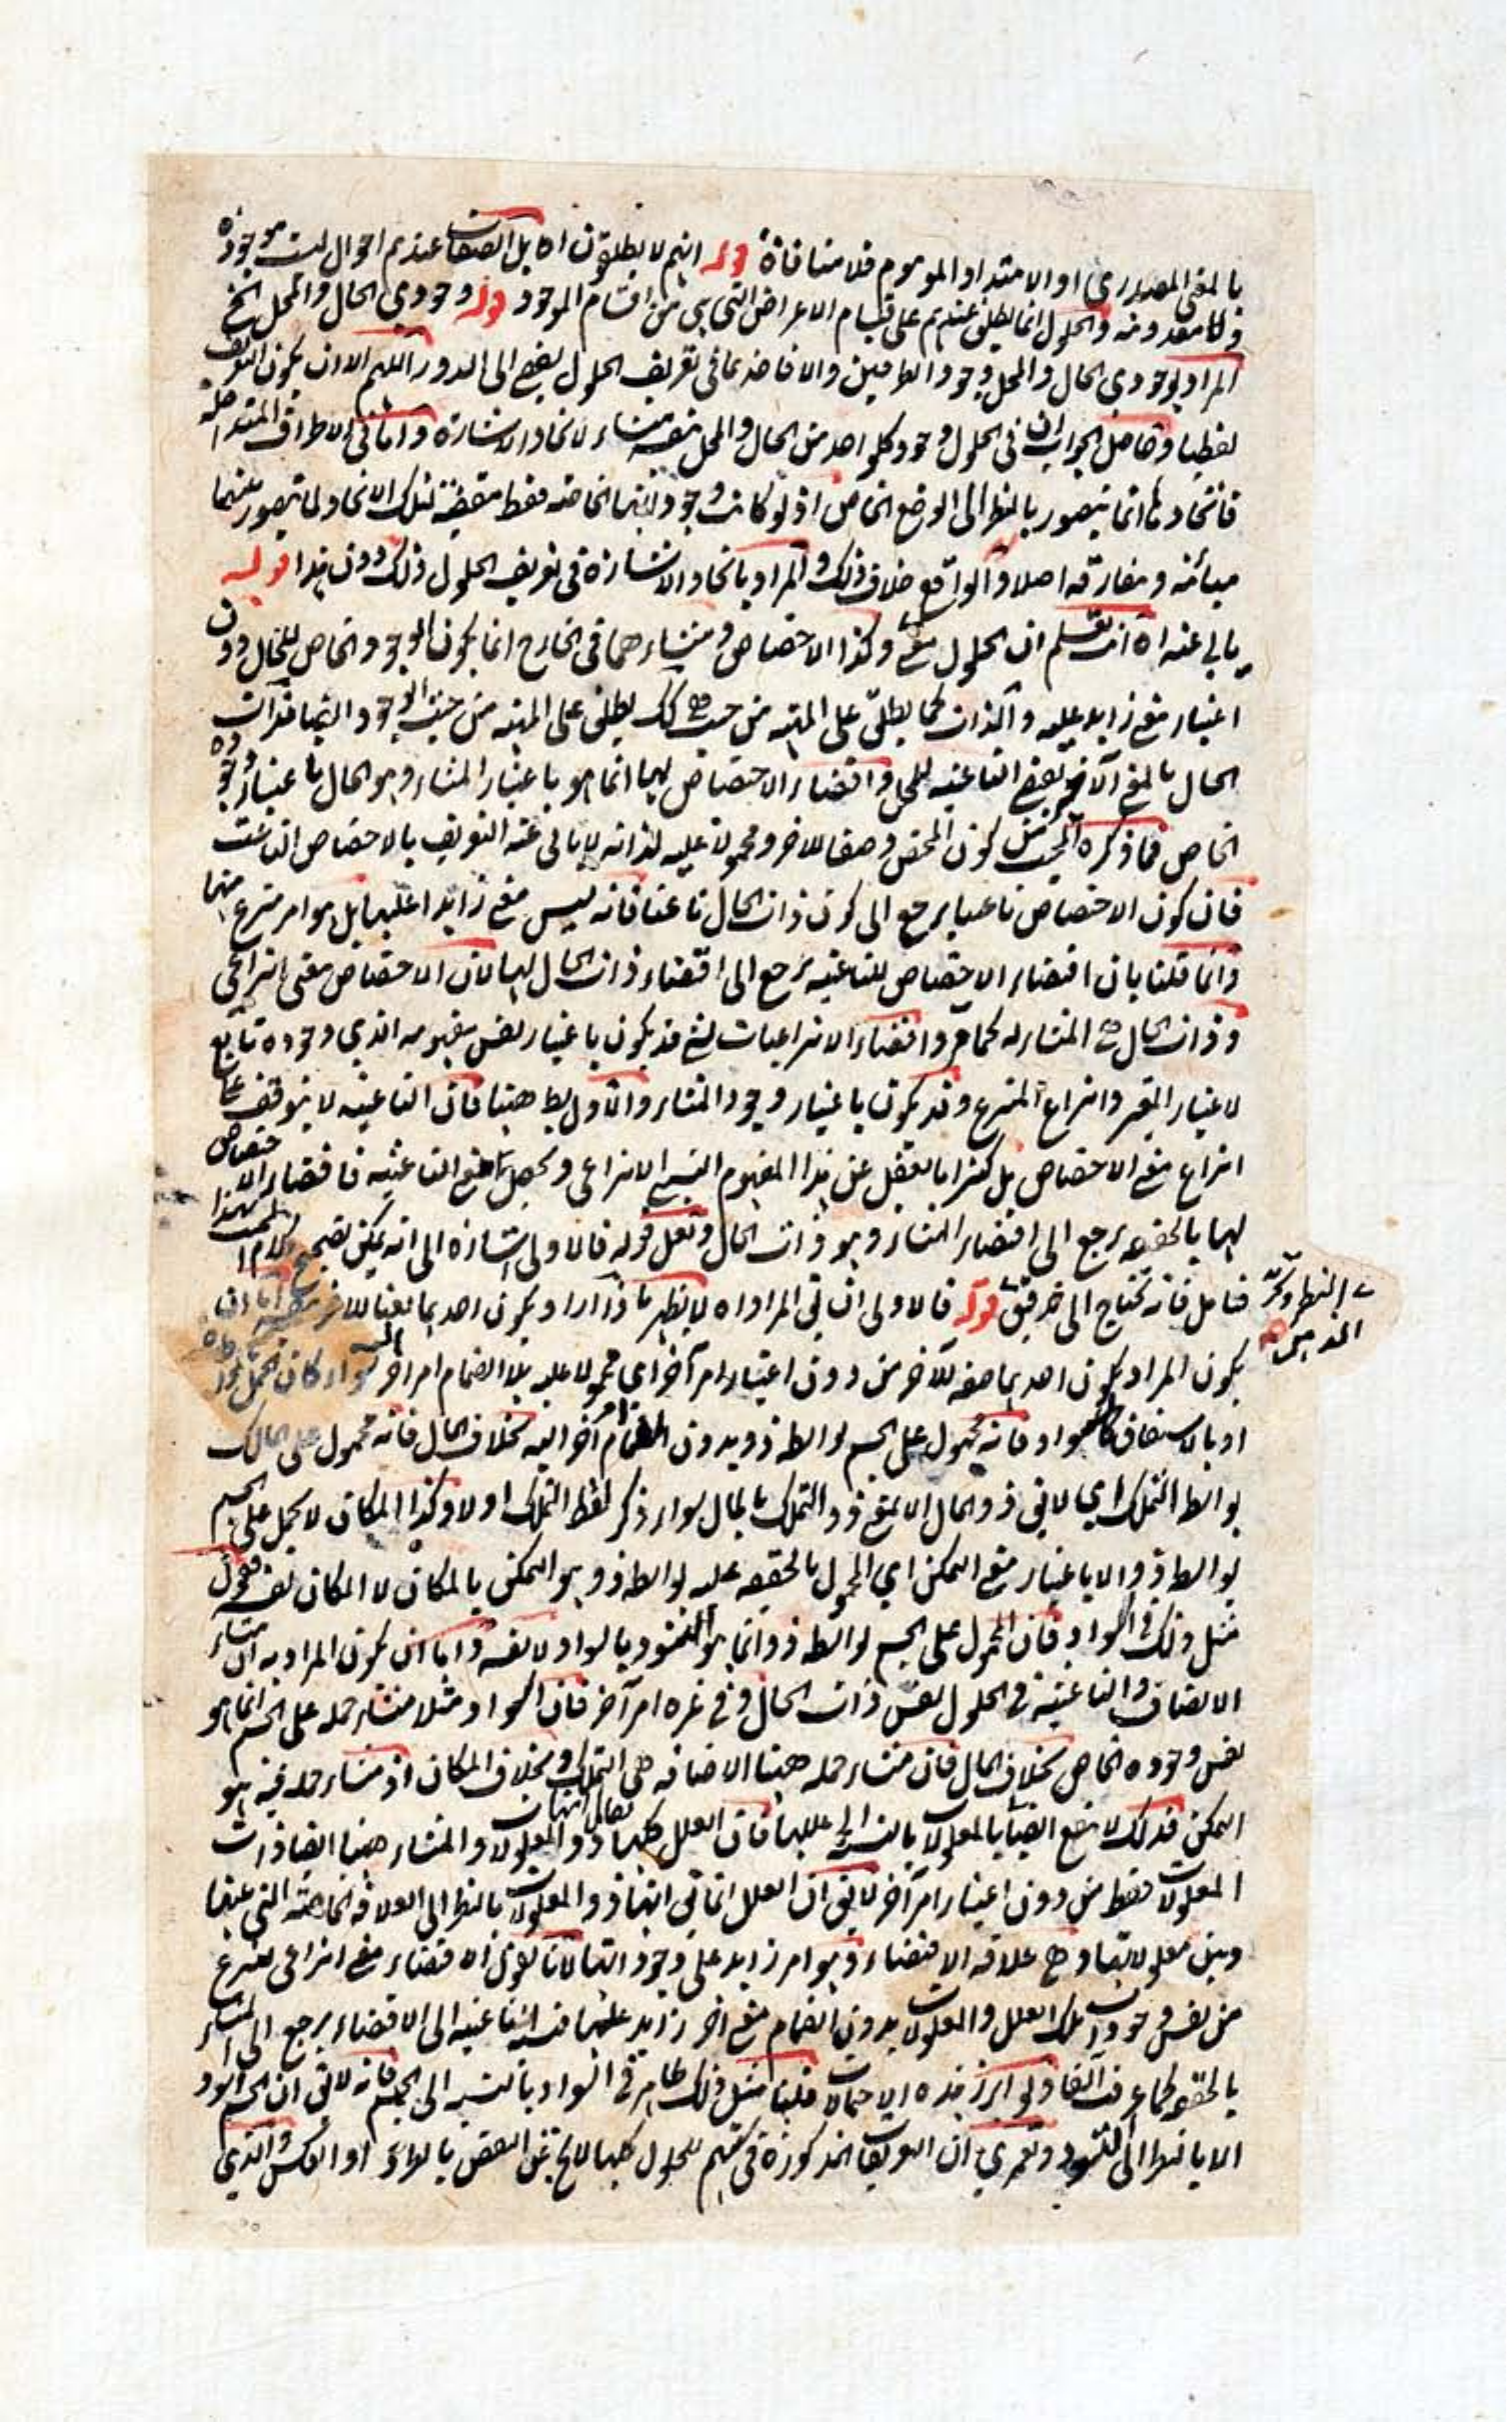 بالمعنى المصدري او الامتداد الموهوم فلا منافاة قوله انهم لا يطلقون اه بل الصفات عندهم احوال ليست موجودة
ولا معدومة والحلول انما يطلق عندهم على قيام الاعراض التي هي من اقسام الموجود قوله وجودي الحال والمحل الخ
المراد بوجودي الحال والمحل وجود الطرفين والا فاخذهما في تعريف الحلول يفضي الى الدور اللهم الا ان يكون التعريف
لفظيا وحاصل الجواب ان في الحلول وجود كل واحد من الحال والمحل بنفسه منشاء لاتحاد الاشارة واما في الاطراف المتداخلة
فاتحادها انما يتصور بالنظر الى الوضع الخاص اذ لو كانت وجوداتها الخاصة فقط مقتضية لتلك الاتحاد لما يتصور بينهما
مبائنة ومفارقة اصلا والواقع خلاف ذلك والمراد باتحاد الاشارة في تعريف الحلول ذلك دون هذا قوله
يابى عنه اه انت تعلم ان الحلول معنى وكذا الاختصاص ومنشاءهما في الخارج انما يكون الوجود الخاص للحال دون
اعتبار معنى زايد عليه والذات كما يطلق على المهية من حيث هي كك يطلق على المهية من حيث الوجود ايضا فذات
الحال بالمعنى الآخر يقتضي الناعتية للمحل واقتضاء الاختصاص لها انما هو باعتبار المنشاء وهو الحال باعتبار وجوده
الخاص فما ذكره المحشي من كون المختص وصفا للاخر ومحمولا عليه لذاته لا يابى عنه التعريف بالاختصاص الناعت
فان كون الاختصاص ناعتا يرجع الى كون ذات الحال ناعتا فانه ليس معنى زايدا عليها بل هو امر منتزع منها
وانما قلنا بان اقتضاء الاختصاص للناعتية يرجع الى اقتضاء ذات الحال لها لان الاختصاص معنى انتزاعي
وذات الحال هي المنشاء له كما مر واقتضاء الانتزاعيات لشئ قد يكون باعتبار نفس مفهومه الذي وجوده تابع
لاعتبار المعتبر وانتزاع المنتزع وقد يكون باعتبار وجود المنشاء والاول بط ههنا فان الناعتية لا يتوقف على
انتزاع معنى الاختصاص بل كثيرا ما يغفل عن هذا المفهوم النسبي الانتزاعي ويحصل معنى الناعتية فاقتضاء الاختصاص
لها بالحقيقة يرجع الى اقتضاء المنشاء وهو ذات الحال ولعل قوله فالاولى اشارة الى انه يمكن تصحيح كلام المحشي بهذا
فتامل فانه يحتاج الى تدقيق النظر وكثرة التدبر قوله فالاولى ان يق المراد اه لا يظهر ما ذا اراد بكون احدهما نعتا للاخر
يكون المراد بكون احدهما صفة للآخر من دون اعتبار امر آخر اي محمولا عليه بلا انضمام امر آخر سواء كان بحمل
او بالاشتقاق كالسواد فانه محمول على الجسم بواسطة ذو بدون انضمام امر آخر اليه بخلاف المال فانه محمول على المالك
بواسطة التملك اي لا يق ذو المال الا بمعنى ذو التملك بالمال سواء ذكر لفظ التملك او لا وكذا المكان لا يحمل على الجسم
بواسطة ذو الا باعتبار معنى التمكن اي المحمول بالحقيقة عليه بواسطة ذو هو التمكن بالمكان لا المكان نفسه فنقول
مثل ذلك في السواد فان المحمول على الجسم بواسطة ذو انما هو التسود بالسواد لا نفسه واما ان يكون المراد به ان منشاء
الاتصاف والناعتية في الحلول نفس ذات الحال وفي غيره امر آخر فان السواد مثلا منشاء حمله على الجسم انما هو
نفس وجوده الخاص بخلاف المال فان منشاء حمله ههنا الاضافة هي التملك وبخلاف المكان اذ منشاء حمله فيه هو
التمكن فذلك لا ينفع ايضا بالمعلولات بالنسبة الى عللها فان العلل كلها يقال انها ذو المعلولات والمنشاء ههنا ايضا ذات
المعلولات فقط من دون اعتبار امر آخر لا يق ان العلل انما يق انها ذو المعلولات بالنظر الى العلاقة الخاصة التي بينها
وبين معلولاتها وهي علاقة الاقتضاء وهو امر زايد على وجود اتها لانا نقول ان الاقتضاء معنى انتزاعي ينتزع
من نفس وجودات تلك العلل والمعلولات بدون انضمام معنى آخر زايد عليها فنسبة الناعتية الى الاقتضاء يرجع الى المنشاء
بالحقيقة كما عرفت آنفا ولو ابرز هذه الاحتمالات قلنا مثل ذلك ظاهر في السواد بالنسبة الى الجسم فانه لا يق ان الجسم اسود
الا بالنظر الى التسود ولعمري ان التعريفات المذكورة في كتبهم للحلول كلها لا يخ عن النقض بالطرد او العكس والذي